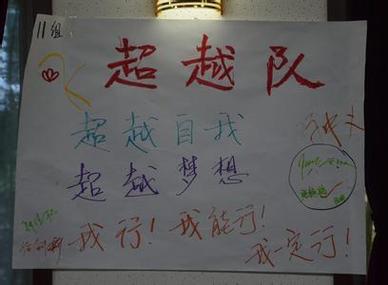 11组
超越队
超越自我
超越梦想
我行！我能行！
我定行！